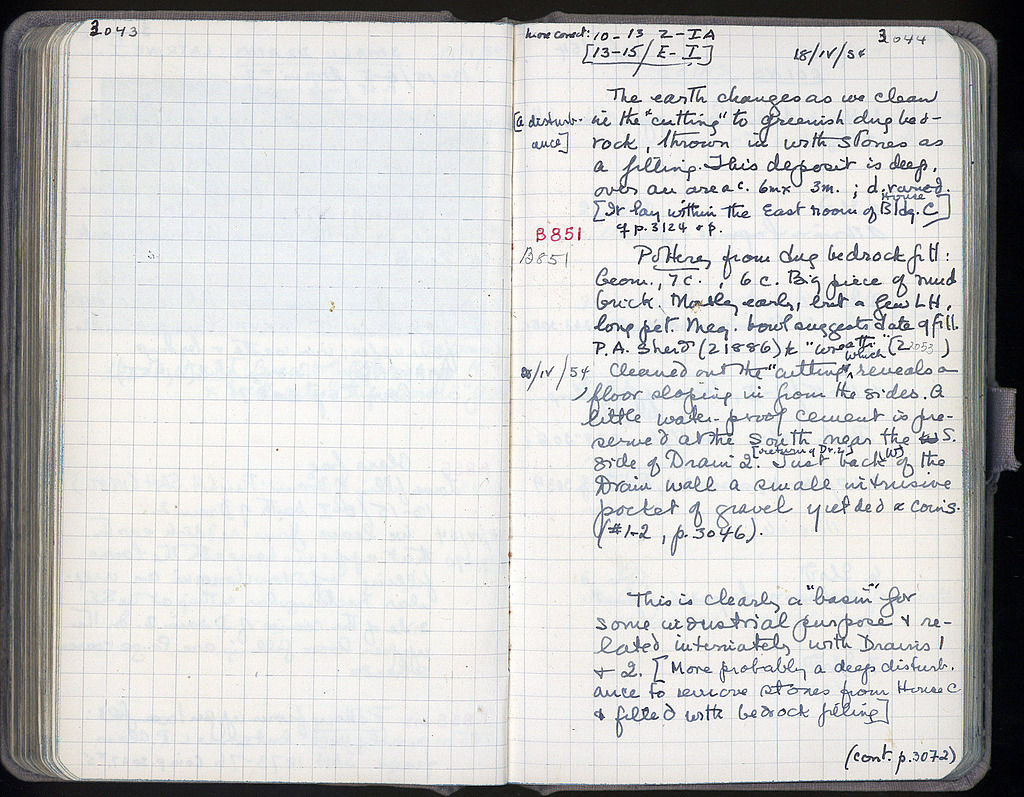 3043
more correct: 10-13 Z-IA
[13-15/E-I]
18/IV/54
3044
The earth changes as we clean
[a disturb-
ance]
in the "cutting" to greenish dug bed-
rock, thrown in with stones as
a filling. This deposit is deep,
over an area c. 6m x 3m. ;
[It lay within the East room of House Bldg. C]
cf p. 3124 & p.
B851
B851
Pottery from dug bedrock fill:
Geom., 7 c., 6 c. Big piece of mud
brick. Mostly early, but a few LH,
long pet. Meg. bowl suggests date of fill.
P.A. Sherd (21886) & "wreath" (22053)
18/IV/54
Cleaned out the "cutting" which reveals a
floor sloping in from the sides. A
little water-proof cement is pre-
served at the South near the S.
side of Drain 2. [return of Dr. 2] Just back (W) of the
Drain wall a small intrusive
pocket of gravel yielded 2 coins.
(#1-2, p. 3046).
This is clearly a "basin" for
some industrial purpose & re-
lated intimately with Drains 1
& 2. [More probably a deep disturb-
ance to remove stones from House C
& filled with bedrock filling]
(cont. p. 3072)